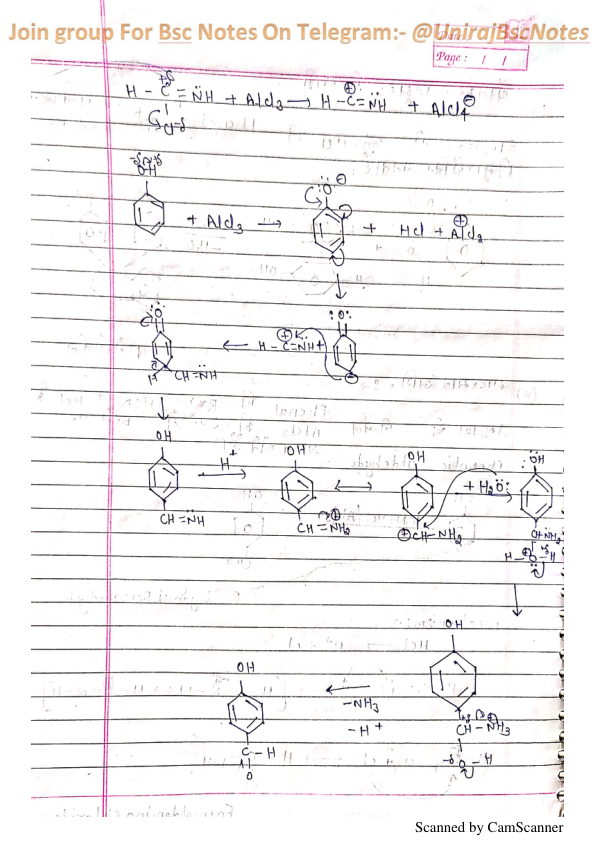 Join group For Bsc Notes On Telegram:- @UnirajBscNotes
Page : / /
H - C = N̈H + AlCl3 → H - C⊕ = N̈H + AlCl4⊖
Cl-δ
+δ
OH
:Ö:⊖
+ AlCl3 → + HCl + ⊕AlCl2
:O:
:O:
H - C⊕ = N̈H +
H
CH = N̈H
OH
H+
CH = N̈H
OH
CH = ⊕NH2
OH
⊕CH - N̈H2
+ H2Ö:
:ÖH
CH N̈H2
H - ⊕O - H
OH
CH - ⊕NH3
-δ O - H
- NH3
- H+
OH
C - H
O
Scanned by CamScanner